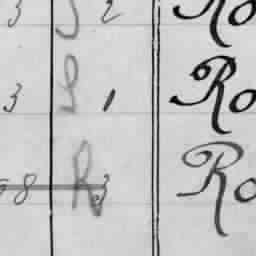 3 S 2 Ro
3 S 1 Ro
8 R 3 Ro